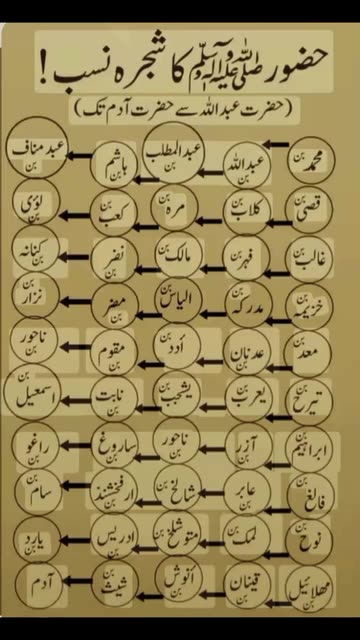 حضور ﷺ کا شجرہ نسب !
(حضرت عبداللہ سے حضرت آدم تک)
محمد بن عبداللہ بن عبدالمطلب بن ہاشم بن عبد مناف بن
قصی بن کلاب بن مرہ بن کعب بن لؤی بن
غالب بن فہر بن مالک بن نضر بن کنانہ بن
خزیمہ بن مدرکہ بن الیاس بن مضر بن نزار بن
معد بن عدنان بن أدد بن مقوم بن ناحور بن
تیرح بن یعرب بن یشجب بن نابت بن اسمعیل بن
ابراہیم بن آزر بن ناحور بن ساروغ بن راغو بن
فالغ بن عابر بن شالخ بن ارفخشذ بن سام بن
نوح بن لمک بن متوشلخ بن ادریس بن یارد بن
مھلائیل بن قینان بن أنوش بن شیث بن آدم